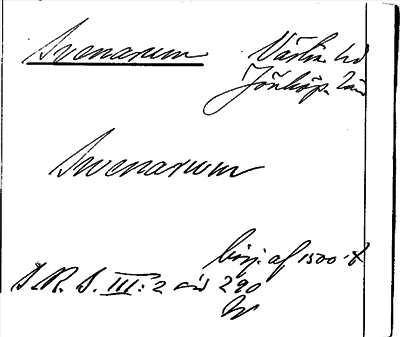 Svenarum Västra hd
Jönköp. län
Swenarwm
börj. af 1500-t
S. R. S. III: 2 sid 290